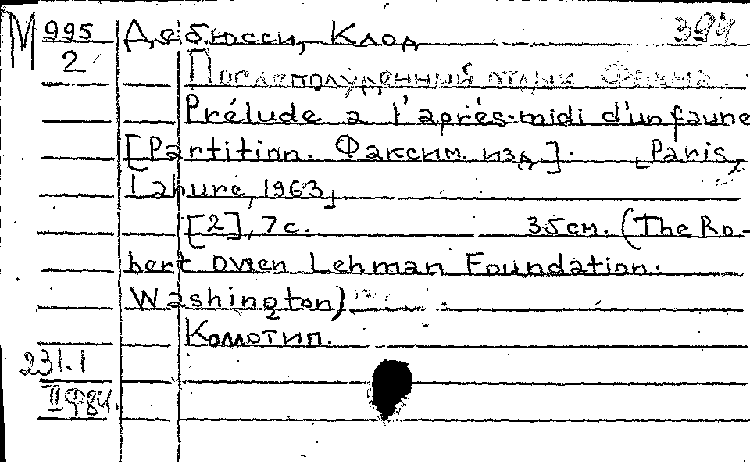 М 995 Дебюсси, Клод 394
2 Послеполуденный отдых Фавна
Prélude a l'après-midi d'un faune
[Partition. Факсим. изд]. [Paris,
Lahure, 1963]
[2], 7 с. 35 см. (The Ro-
bert Owen Lehman Foundation.
Washington)
Коллотип.
231.1
II Ф84.